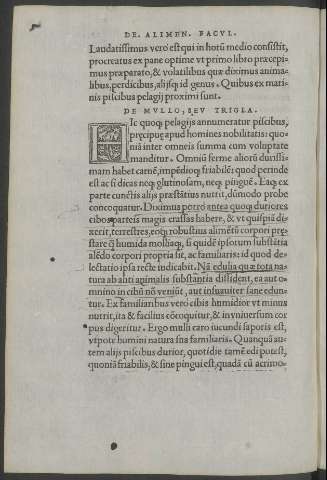 DE ALIMEN. FACVL.
Laudatissimus vero est qui in horũ medio consistit,
procreatus ex pane optime vt primo libro præcepi-
mus præparato, & volatilibus quæ diximus anima-
libus, perdicibus, alijsq; id genus. Quibus ex mari-
nis piscibus pelagij proximi sunt.
DE MVLLO, SEV TRIGLA.
HIc quoq; pelagijs annumeratur piscibus,
pręcipuę apud homines nobilitatis: quo-
niã inter omneis summa cum voluptate
manditur. Omniũ ferme aliorũ durissi-
mam habet carnẽ, impẽdioq; friabilẽ: quod perinde
est ac si dicas neq; glutinosam, neq; pinguẽ. Eaq; ex
parte cunctis alijs præstãtius nutrit, dũmodo probe
concoquatur. Diximus porro antea quoq; duriores
cibos parteis magis crassas habere, & vt quispiã di-
xerit, terrestres, eoq; robustius alimẽtũ corpori prę-
stare q̃ humida molliaq;, si quidẽ ipsorum substãtia
alẽdo corpori propria sit, ac familiaris: id quod de-
lectatio ipsa recte iudicabit. Nã edulia quæ tota na-
tura ab alti animalis substantia dissident, ea aut o-
mnino in cibũ nõ veniũt, aut insuauiter sane edun-
tur. Ex familiaribus vero cibis humidior vt minus
nutrit, ita & facilius cõcoquitur, & in vniuersum cor
pus digeritur. Ergo mulli caro iucundi saporis est,
vtpote homini natura sua familiaris. Quanquã au-
tem alijs piscibus durior, quotidie tamẽ edi potest,
quoniã friabilis, & sine pingui est, quadã cũ acrimo-